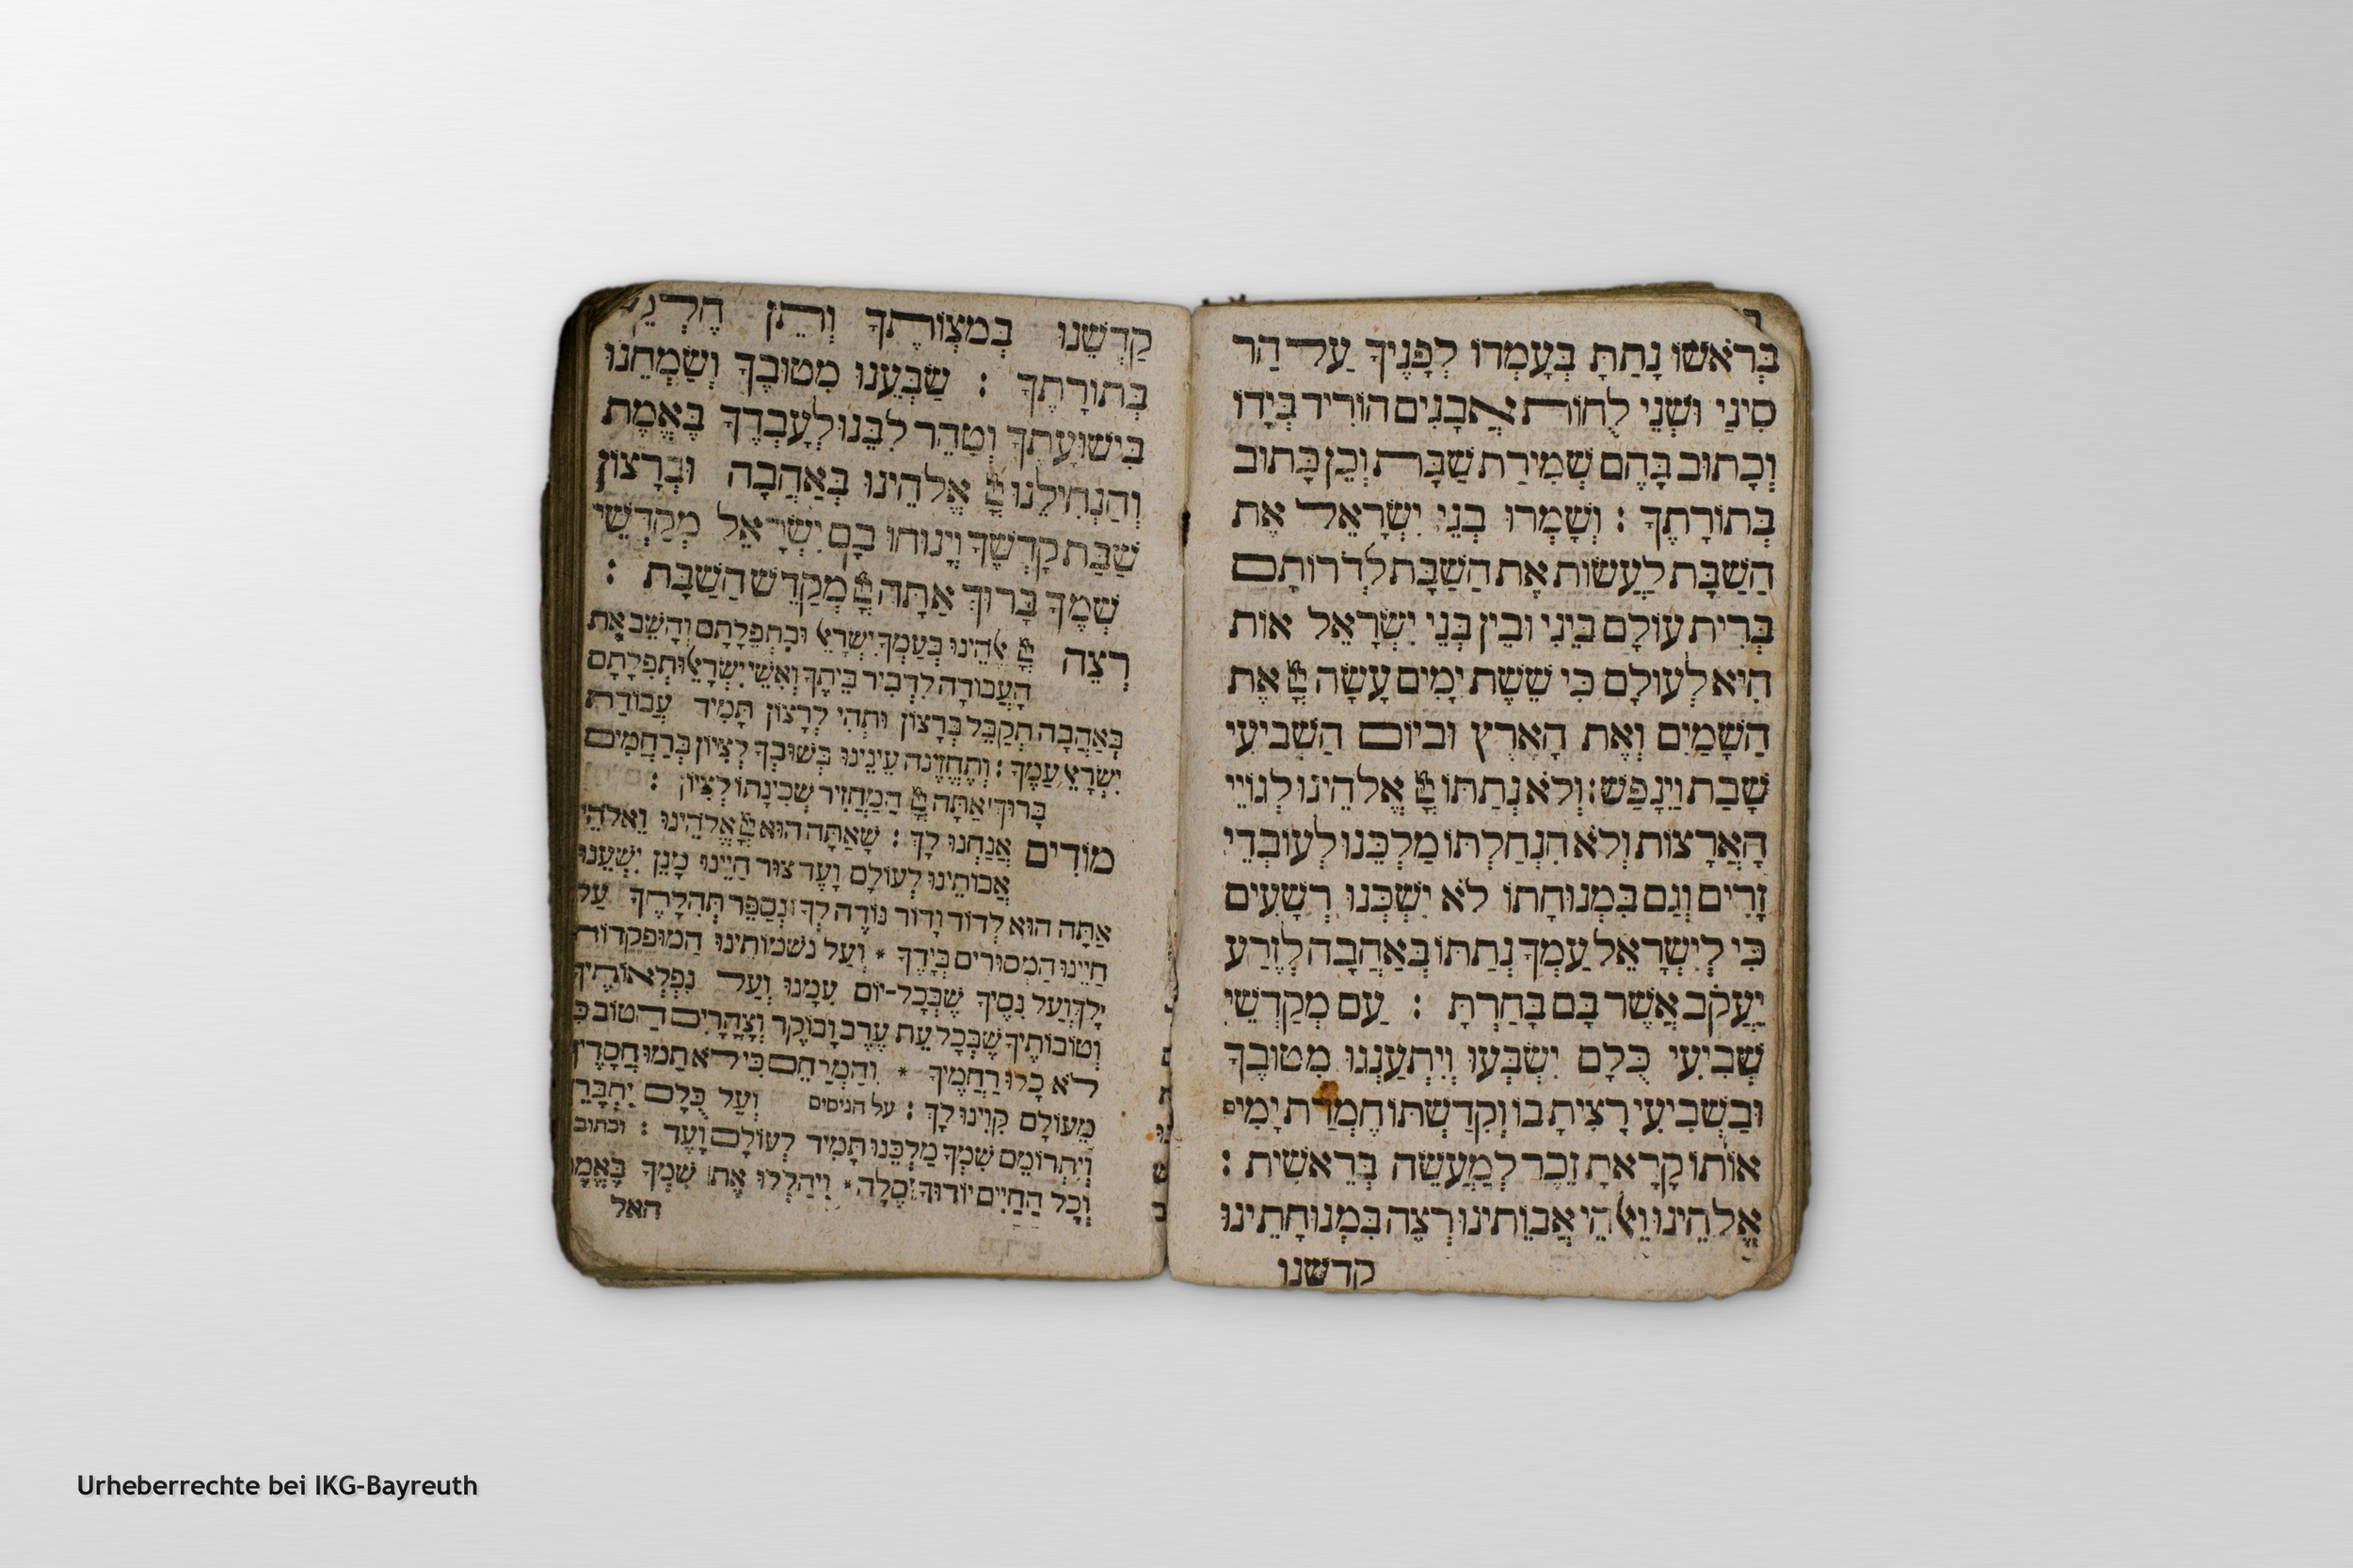 בְּרֹאשׁוֹ נָתַתָּ בְּעָמְדוֹ לְפָנֶיךָ עַל הַר
סִינַי וּשְׁנֵי לֻחוֹת אֲבָנִים הוֹרִיד בְּיָדוֹ
וְכָתוּב בָּהֶם שְׁמִירַת שַׁבָּת וְכֵן כָּתוּב
בְּתוֹרָתֶךָ : וְשָׁמְרוּ בְנֵי יִשְׂרָאֵל אֶת
הַשַׁבָּת לַעֲשׂוֹת אֶת הַשַׁבָּת לְדֹרוֹתָם
בְּרִית עוֹלָם בֵּינִי וּבֵין בְּנֵי יִשְׂרָאֵל אוֹת
הִיא לְעוֹלָם כִּי שֵׁשֶׁת יָמִים עָשָׂה יְיָ אֶת
הַשָׁמַיִם וְאֶת הָאָרֶץ וּבַיוֹם הַשְׁבִיעִי
שָׁבַת וַיִנָפַשׁ : וְלֹא נְתַתּוֹ יְיָ אֱלֹהֵינוּ לְגוֹיֵי
הָאֲרָצוֹת וְלֹא הִנְחַלְתּוֹ מַלְכֵּנוּ לְעוֹבְדֵי
זָרִים וְגַם בִּמְנוּחָתוֹ לֹא יִשְׁכְּנוּ רְשָׁעִים
כִּי לְיִשְׂרָאֵל עַמְךָ נְתַתּוֹ בְּאַהֲבָה לְזֶרַע
יַעֲקֹב אֲשֶׁר בָּם בָּחַרְתָּ : עַם מְקַדְשֵׁי
שְׁבִיעִי כֻּלָם יִשְׂבְּעוּ וְיִתְעַנְגוּ מִטוּבֶךָ
וּבַשְׁבִיעִי רָצִיתָ בוֹ וְקִדַשְׁתּוֹ חֶמְדַת יָמִים
אוֹתוֹ קָרָאתָ זֵכֶר לְמַעֲשֵׂה בְּרֵאשִׁית :
אֱלֹהֵינוּ וֵאלֹהֵי אֲבוֹתֵינוּ רְצֵה בִּמְנוּחָתֵינוּ
קדשנו
קַדְשֵׁנוּ בְּמִצְוֹתֶךָ וְתֵן
בְּתוֹרָתֶךָ : שַׂבְּעֵנוּ מִטוּבֶךָ וְשַׂמְחֵנוּ
בִּישׁוּעָתֶךָ וְטַהֵר לִבֵּנוּ לְעָבְדֶךָ בֶּאֱמֶת
וְהַנְחִילֵנוּ יְיָ אֱלֹהֵינוּ בְּאַהֲבָה וּבְרָצוֹן
שַׁבַּת קָדְשֶׁךָ וְיָנוּחוּ בָם יִשְׂרָאֵל מְקַדְשֵׁי
שְׁמֶךָ בָּרוּךְ אַתָּה יְיָ מְקַדֵשׁ הַשַׁבָּת :
רְצֵה יְיָ אֱלֹהֵינוּ בְּעַמְךָ יִשְׂרָאֵל וּבִתְפִלָתָם וְהָשֵׁב אֶת
הָעֲבוֹדָה לִדְבִיר בֵּיתֶךָ וְאִשֵׁי יִשְׂרָאֵל וּתְפִלָתָם
בְּאַהֲבָה תְקַבֵּל בְּרָצוֹן וּתְהִי לְרָצוֹן תָּמִיד עֲבוֹדַת
יִשְׂרָאֵל עַמֶךָ : וְתֶחֱזֶינָה עֵינֵינוּ בְּשׁוּבְךָ לְצִיוֹן בְּרַחֲמִים
בָּרוּךְ אַתָּה יְיָ הַמַחֲזִיר שְׁכִינָתוֹ לְצִיוֹן :
מוֹדִים אֲנַחְנוּ לָךְ : שָׁאַתָּה הוּא יְיָ אֱלֹהֵינוּ וֵאלֹהֵי
אֲבוֹתֵינוּ לְעוֹלָם וָעֶד צוּר חַיֵינוּ מָגֵן יִשְׁעֵנוּ
אַתָּה הוּא לְדוֹר וָדוֹר נוֹדֶה לְךָ וּנְסַפֵּר תְּהִלָתֶךָ עַל
חַיֵינוּ הַמְסוּרִים בְּיָדֶךָ * וְעַל נִשְׁמוֹתֵינוּ הַפְּקוּדוֹת
לָךְ וְעַל נִסֶיךָ שֶׁבְּכָל-יוֹם עִמָנוּ וְעַל נִפְלְאוֹתֶיךָ
וְטוֹבוֹתֶיךָ שֶׁבְּכָל עֵת עֶרֶב וָבוֹקֶר וְצָהֳרָיִם הַטוֹב כִּי
לֹא כָלוּ רַחֲמֶיךָ * וְהַמְרַחֵם כִּי לֹא תַמוּ חֲסָדֶיךָ
מֵעוֹלָם קִוִינוּ לָךְ : על הניסים וְעַל כֻּלָם יִתְבָּרֵךְ
וְיִתְרוֹמֵם שִׁמְךָ מַלְכֵּנוּ תָּמִיד לְעוֹלָם וָעֶד : וכתוב
וְכָל הַחַיִים יוֹדוּךָ סֶלָה * וִיהַלְלוּ אֶת שִׁמְךָ בֶּאֱמֶת
האל
Urheberrechte bei IKG-Bayreuth